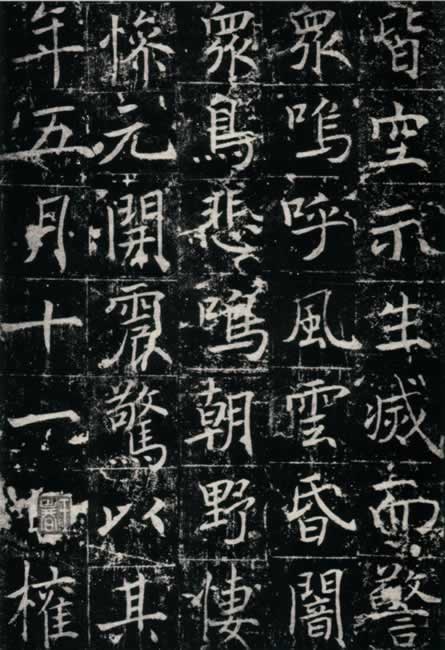 皆空示生滅而警
眾嗚呼風雲昏闇
眾鳥悲鳴朝野悽
慘元瀾震驚以其
年五月十一日權